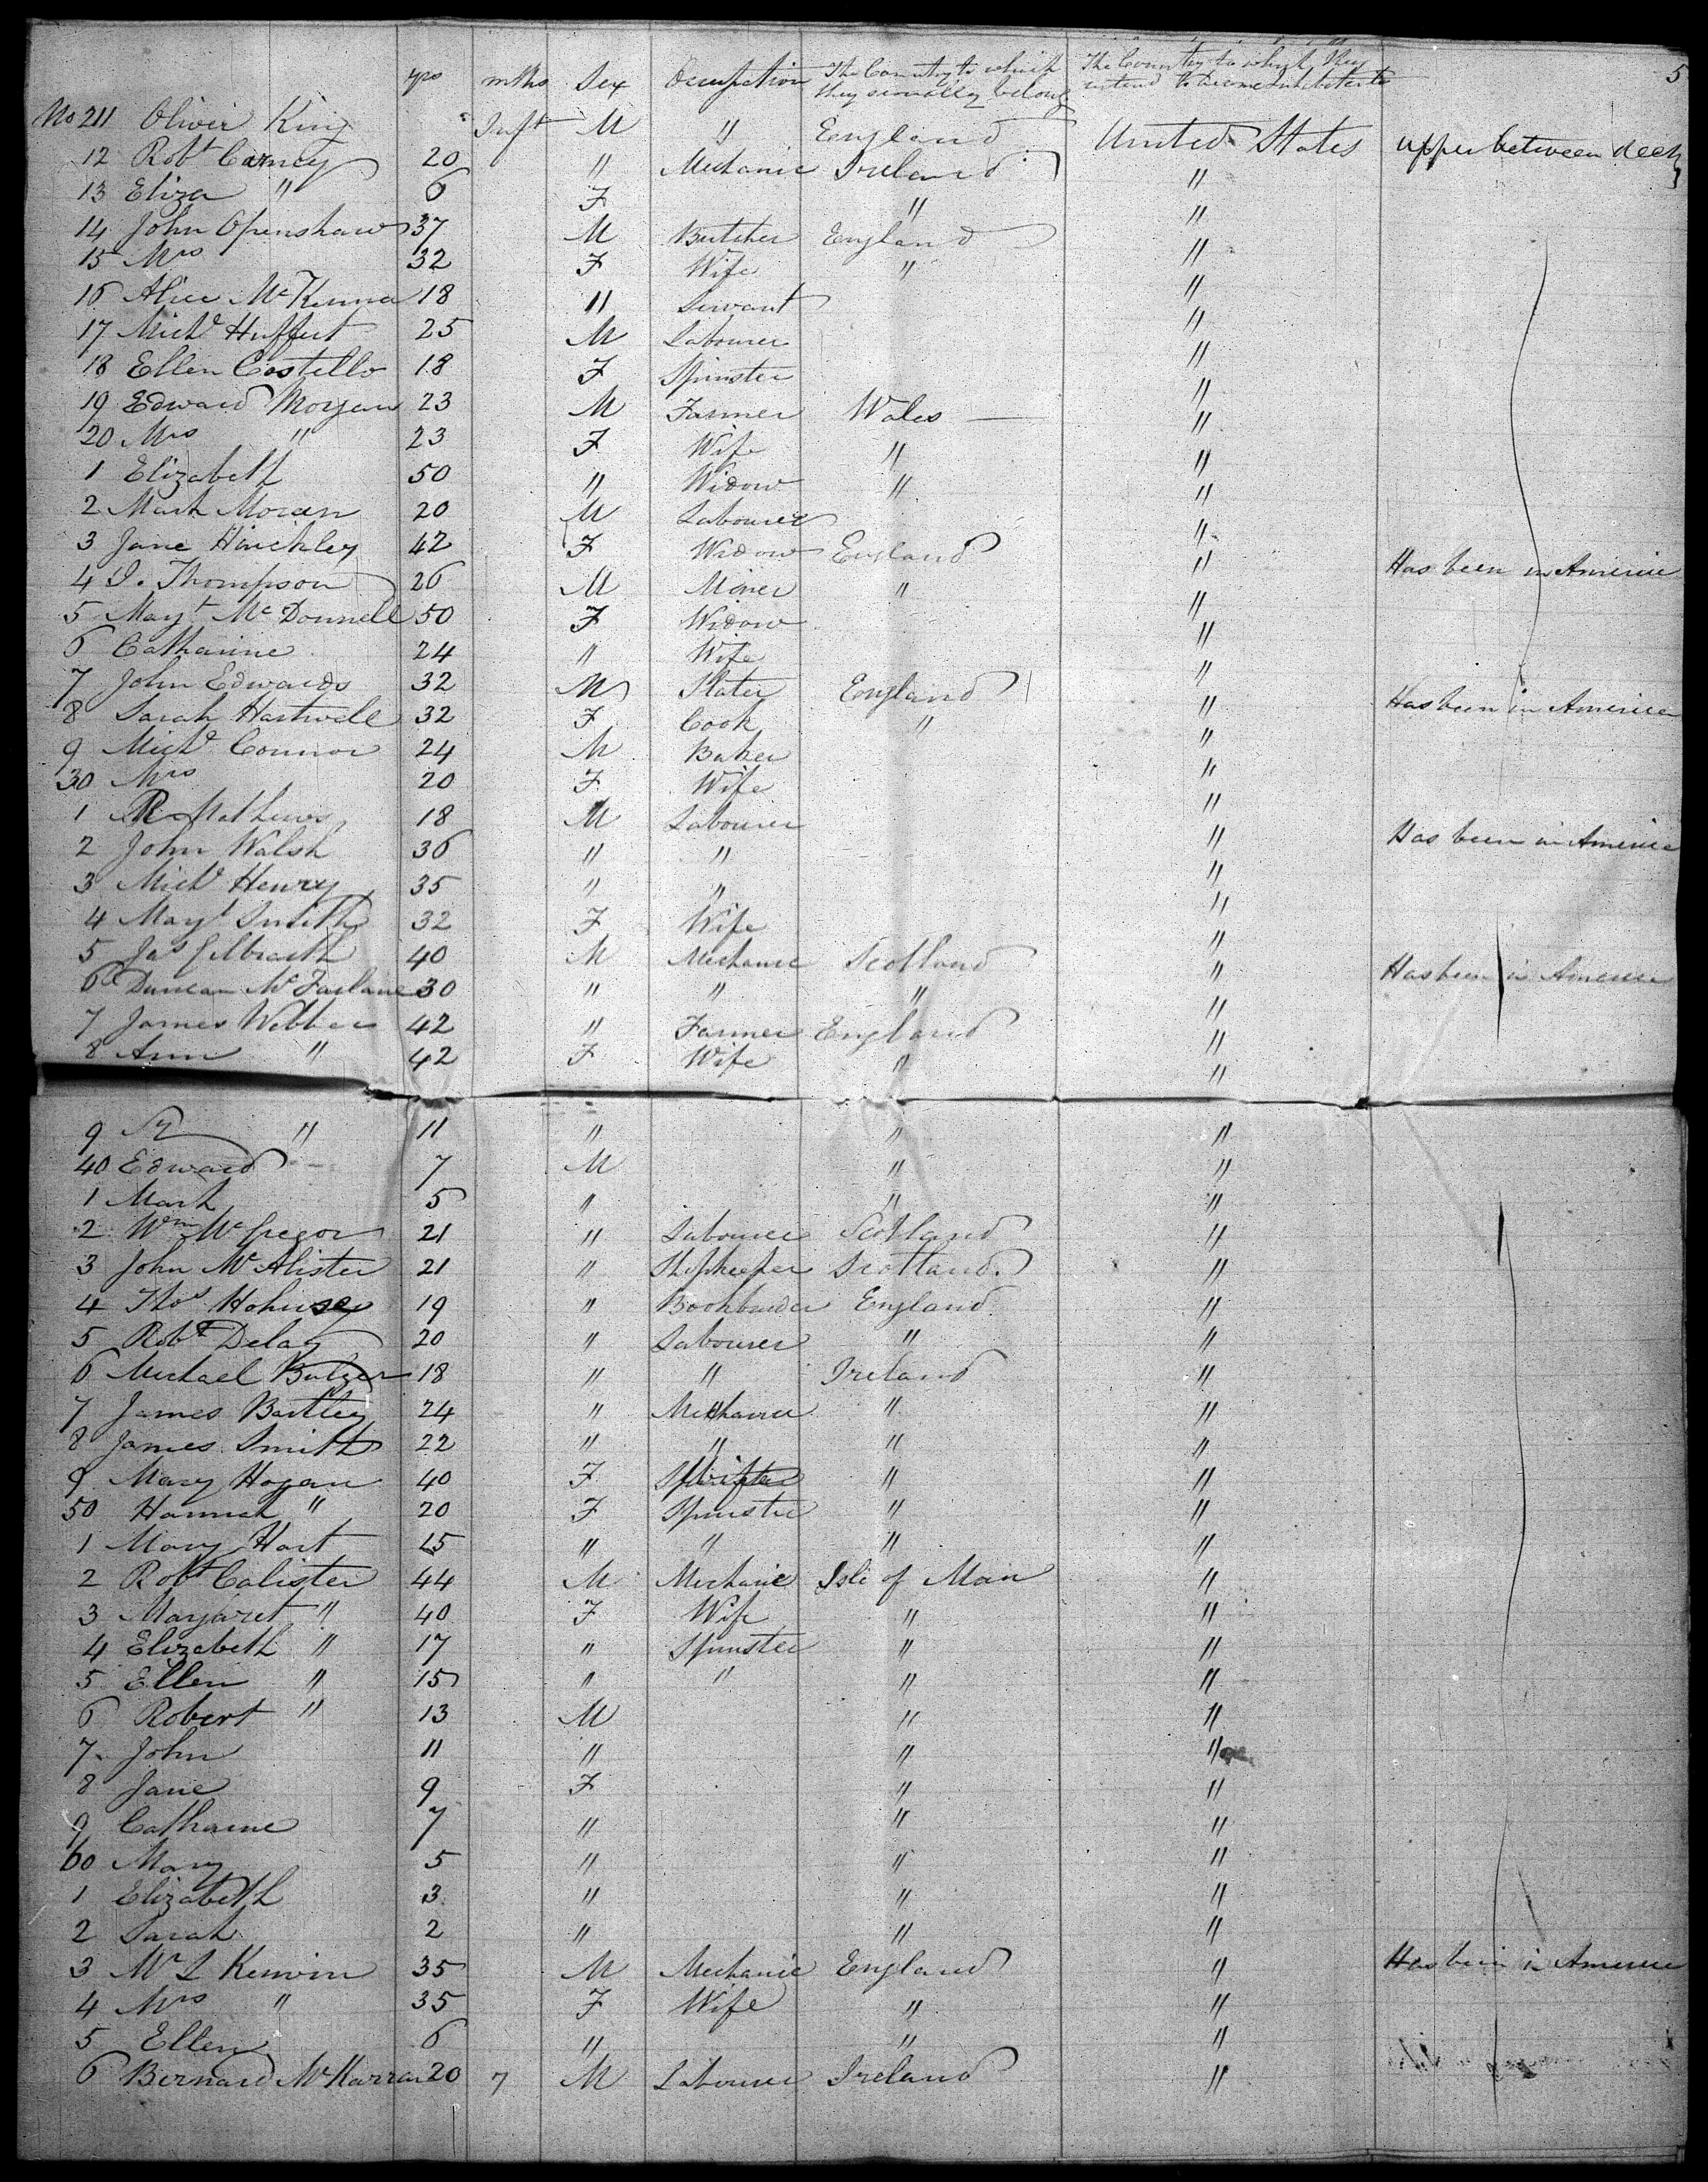 5
yrs mths Sex Occupation The Country to which they severally belong The Country to which they intend to become Inhabitants
No 211 Oliver King Inft M " England United States upper between deck
12 Robt Carney 20 " Mechanic Ireland "
13 Eliza " 6 F " "
14 John Openshaw 37 M Butcher England "
15 Mrs 32 F Wife " "
16 Alice McKenna 18 " Servant "
17 Michl Huffert 25 M Labourer "
18 Ellen Costello 18 F Spinster "
19 Edward Morgan 23 M Farmer Wales "
20 Mrs " 23 F Wife " "
1 Elizabeth 50 " Widow " "
2 Mark Moran 20 M Labourer "
3 Jane Hinckley 42 F Widow England " Has been in America
4 I. Thompson 26 M Miner " "
5 Mayt McDonnell 50 F Widow "
6 Catharine 24 " Wife "
7 John Edwards 32 M Slater England " Has been in America
8 Sarah Hartwell 32 F Cook " "
9 Michl Connor 24 M Baker "
30 Mrs 20 F Wife "
1 R Mathews 18 M Labourer "
2 John Walsh 36 " " " Has been in America
3 Michl Henry 35 " " "
4 Mayt Smith 32 F Wife "
5 Jas Gilbraith 40 M Mechanic Scotland "
6 Duncan McFarlane 30 " " " " Has been in America
7 James Webber 42 " Farmer England "
8 Ann " 42 F Wife " "
9 " 11 " " "
40 Edward " 7 M " "
1 Mark 5 " " "
2 Wm McGregor 21 " Labourer Scotland "
3 John McAlister 21 " Shopkeeper Scotland "
4 Thos 19 " Bookbinder England "
5 Robt Delay 20 " Labourer " "
6 Michael 18 " " Ireland "
7 James Bartley 24 " Mechanic " "
8 James Smith 22 " " " "
9 Mary Hogan 40 F " "
50 Hannah " 20 F Spinster " "
1 Mary Hart 15 " " " "
2 Robt Calister 44 M Mechanic Isle of Man "
3 Margaret " 40 F Wife " "
4 Elizabeth " 17 " Spinster " "
5 Ellen " 15 " " " "
6 Robert " 13 M " "
7 John 11 " " "
8 Jane 9 F " "
9 Catharine 7 " " "
60 Mary 5 " " "
1 Elizabeth 3 " " "
2 Sarah 2 " " "
3 Mr L Kerwin 35 M Mechanic England " Has been in America
4 Mrs " 35 F Wife " "
5 Ellen 6 " " "
6 Bernard McKarran 20 7 M Labourer Ireland "